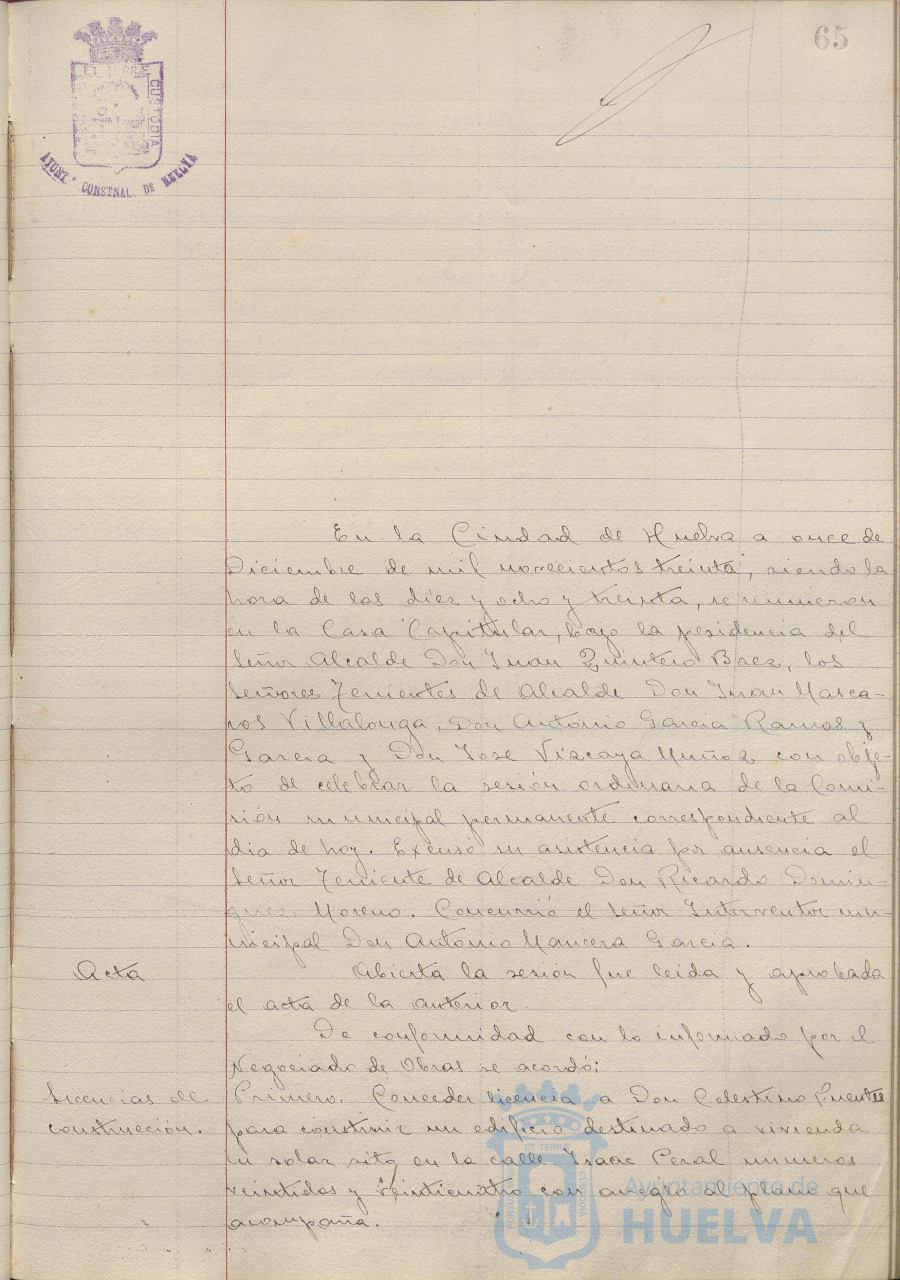 65
ET TERRÆ
CUSTODIA
AYUNT.º CONSTNAL. DE HUELVA
En la Ciudad de Huelva a once de
Diciembre de mil novecientos treinta, siendo la
hora de las diez y ocho y treinta, se reunieron
en la Casa Capitular, bajo la presidencia del
Señor Alcalde Don Juan Quintero Baez, los
Señores Tenientes de Alcalde Don Juan Masca-
ros Villalonga, Don Antonio Garcia Ramos y
Garcia y Don Jose Vizcaya Muñoz con obje-
to de celebrar la sesión ordinaria de la Comi-
sión municipal permanente correspondiente al
dia de hoy. Excusó su asistencia por ausencia el
Señor Teniente de Alcalde Don Ricardo Domin-
guez Moreno. Concurrió el Señor Interventor mu-
nicipal Don Antonio Mancera Garcia.
Acta
Abierta la sesión fue leida y aprobada
el acta de la anterior.
De conformidad con lo informado por el
Negociado de Obras se acordó:
Licencias de
construcción.
Primero. Conceder licencia a Don Celestino Puentes
para construir un edificio destinado a vivienda
en solar sito en la calle Isaac Peral numeros
veintidos y veinticuatro con arreglo al plano que
acompaña.
ET TERRE
CUSTODIA
Ayuntamiento de
HUELVA